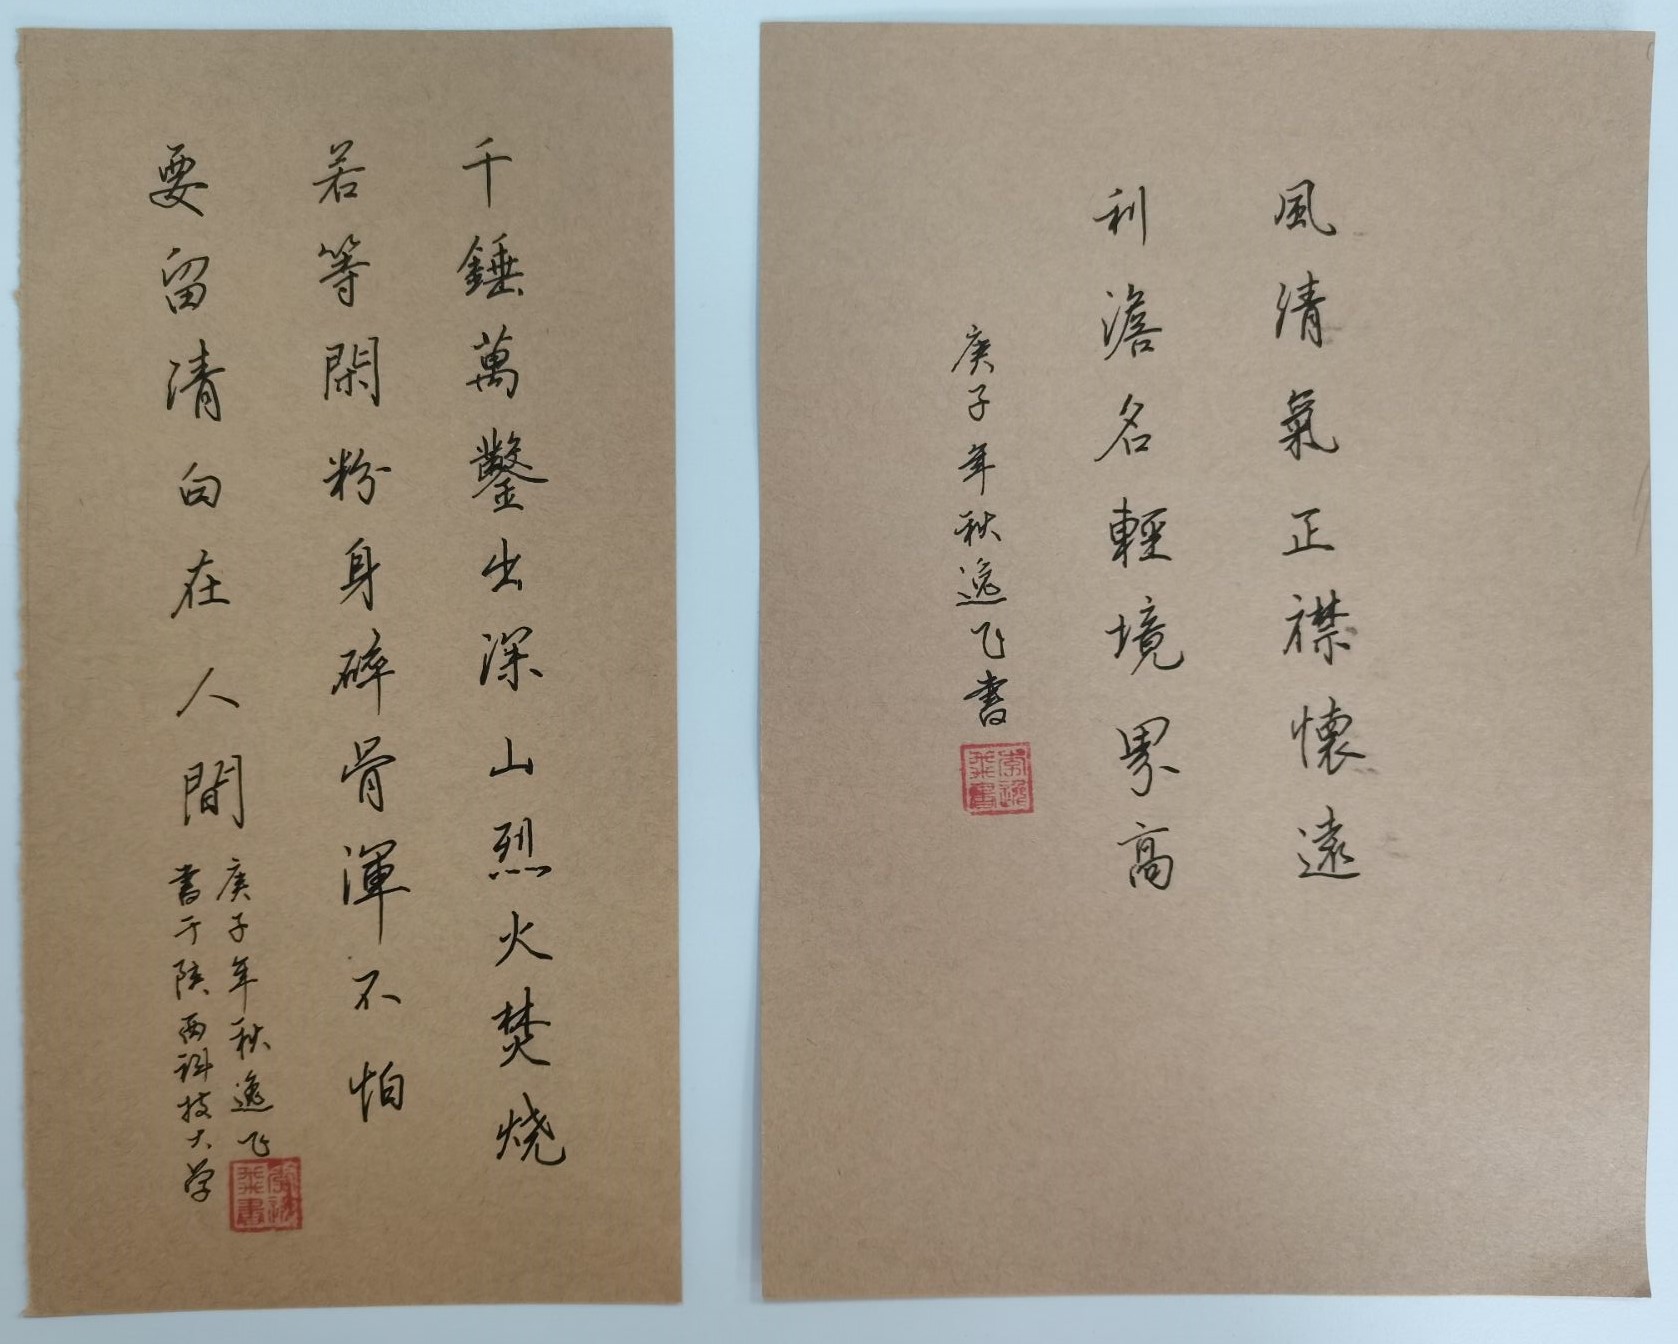 千錘萬鑿出深山烈火焚燒
若等閑粉身碎骨渾不怕
要留清白在人間
庚子年秋逸飞
書于陕西科技大学
風清氣正襟懷遠
利澹名輕境界高
庚子年秋逸飞書